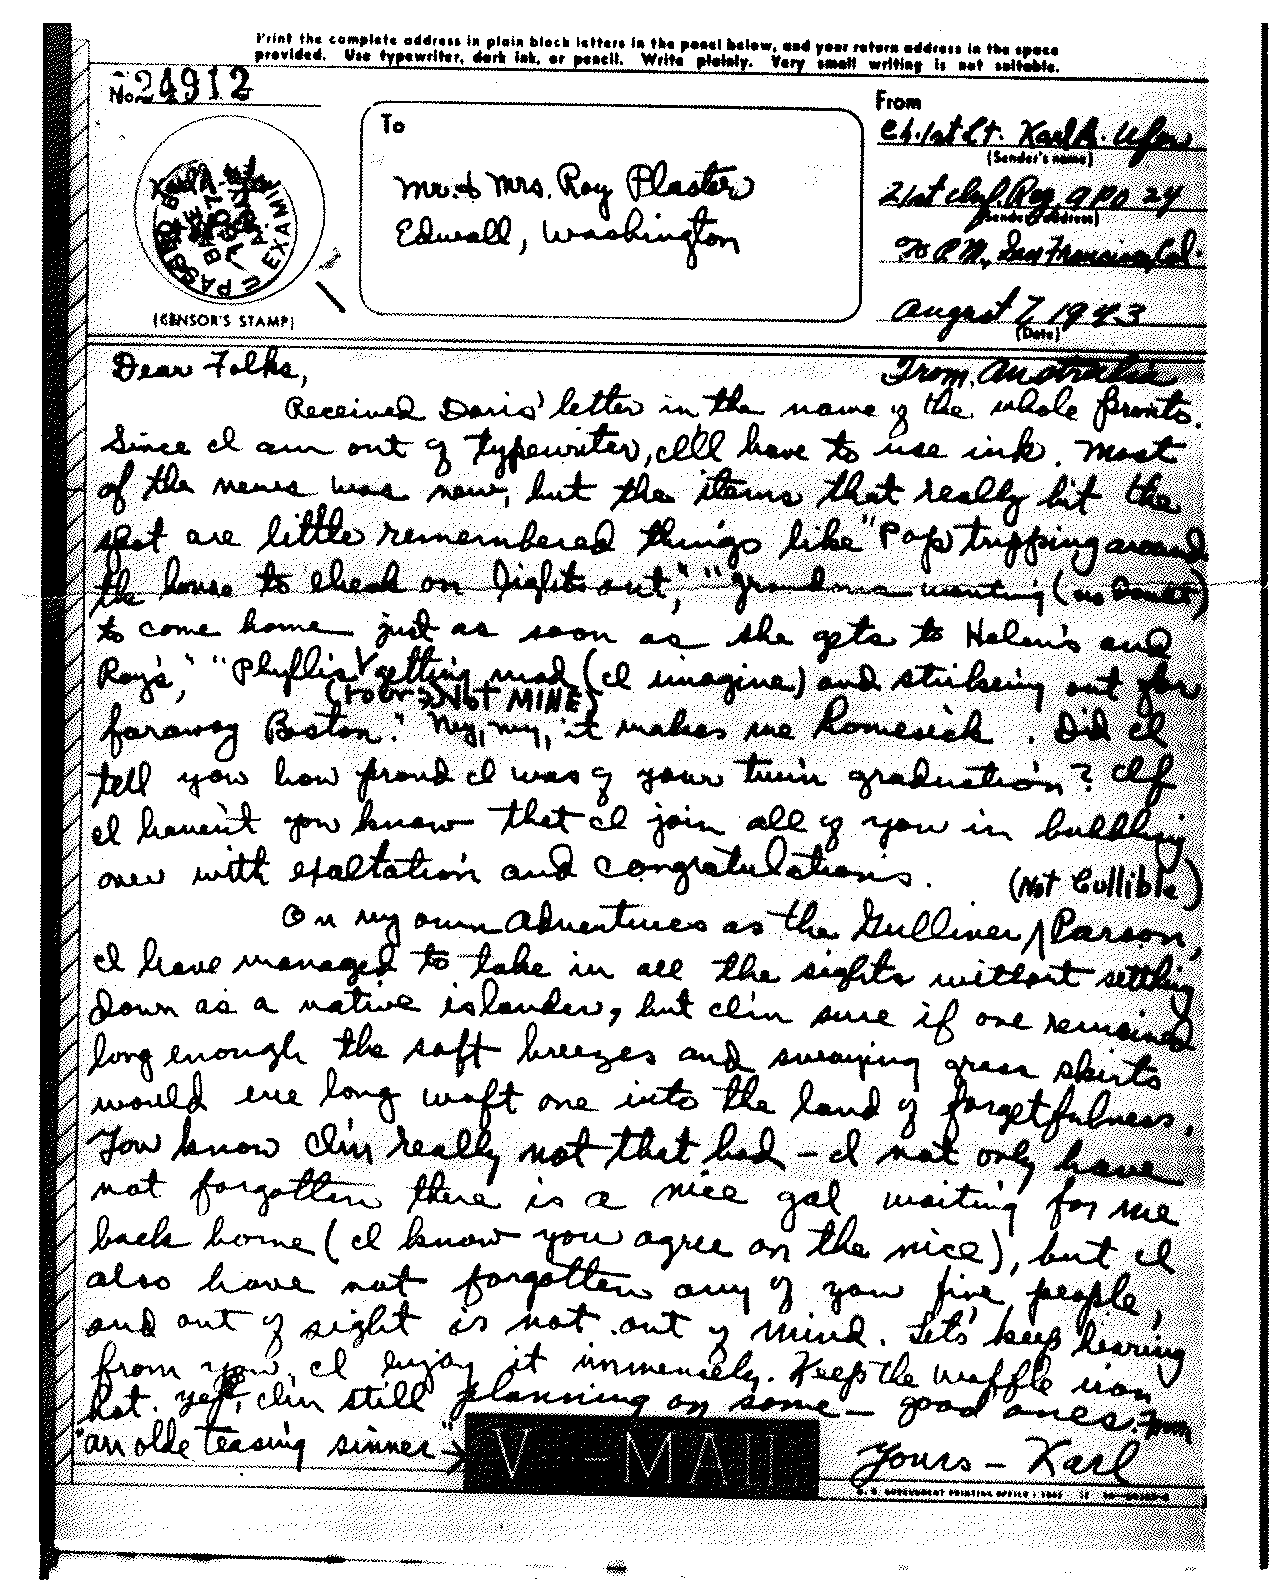 Print the complete address in plain block letters in the panel below, and your return address in the space
provided. Use typewriter, dark ink, or pencil. Write plainly. Very small writing is not suitable.
No. 24912
(CENSOR'S STAMP)
To
Mr. & Mrs. Roy Plaster
Edwall, Washington
From
Ch. 1st Lt. Karl A. Ufer
(Sender's name)
21st Inf. Reg. APO 24
(Sender's address)
% P.M., San Francisco, Cal.
August 7, 1943
(Date)
Dear Folks,
From Australia
Received Doris' letter in the name of the whole
Since I am out of typewriter, I'll have to use ink. Most
of the news was new, but the items that really hit the
spot are little remembered things like "Pops tripping around
the house to check on lights out," "Grandma wanting (no doubt)
to come home just as soon as she gets to Helen's and
Roy's," "Phyllis' getting mad (I imagine) and striking out for
(YOURS, NOT MINE)
faraway Boston." My, my, it makes me homesick. Did I
tell you how proud I was of your twin graduation? If
I haven't you know that I join all of you in bubbling
over with exaltation and congratulations.
(Not Gullible)
On my own adventures as the Gulliver Parson,
I have managed to take in all the sights without settling
down as a native islander, but I'm sure if one remained
long enough the soft breezes and swaying grass skirts
would ere long waft one into the land of forgetfulness.
You know I'm really not that bad — I not only have
not forgotten there is a nice gal waiting for me
back home (I know you agree on the nice), but I
also have not forgotten any of you fine people,
and out of sight is not out of mind. Let's keep hearing
from you. I enjoy it immensely. Keep the waffle iron
hot. Yep, I'm still planning on some — good ones. From
"an olde teasing sinner" →
V - MAIL
Yours — Karl
U. S. GOVERNMENT PRINTING OFFICE : 1942